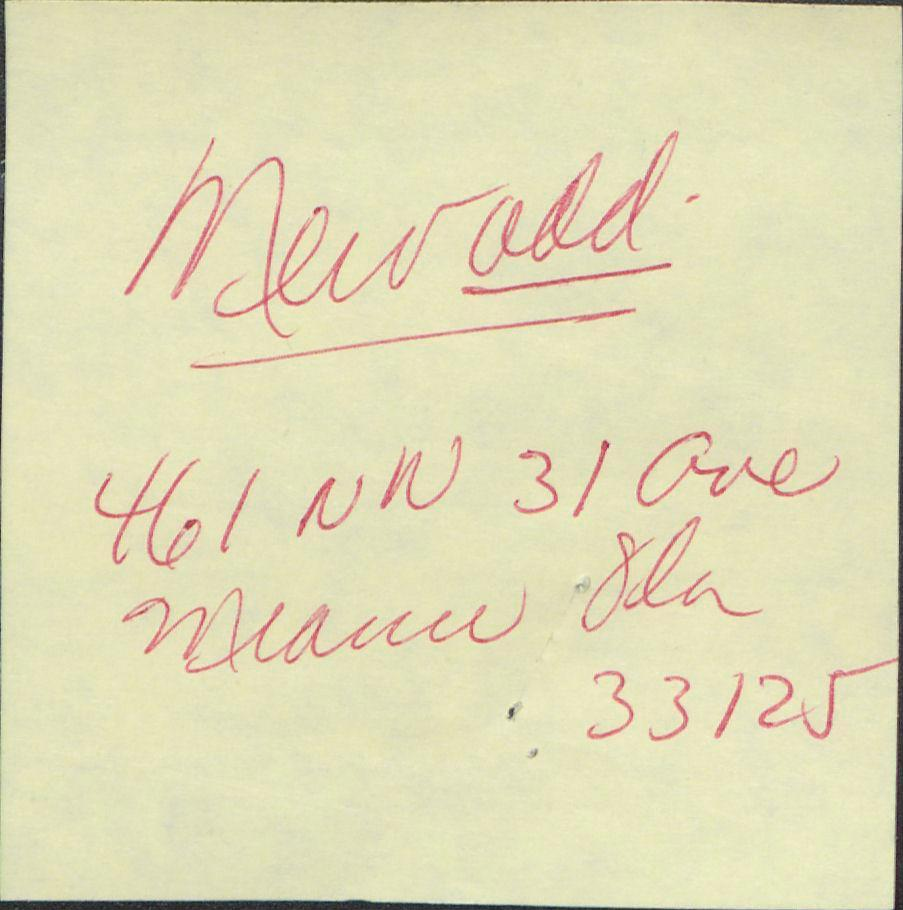 New add.
461 NW 31 Ave
Miami Fla
33125